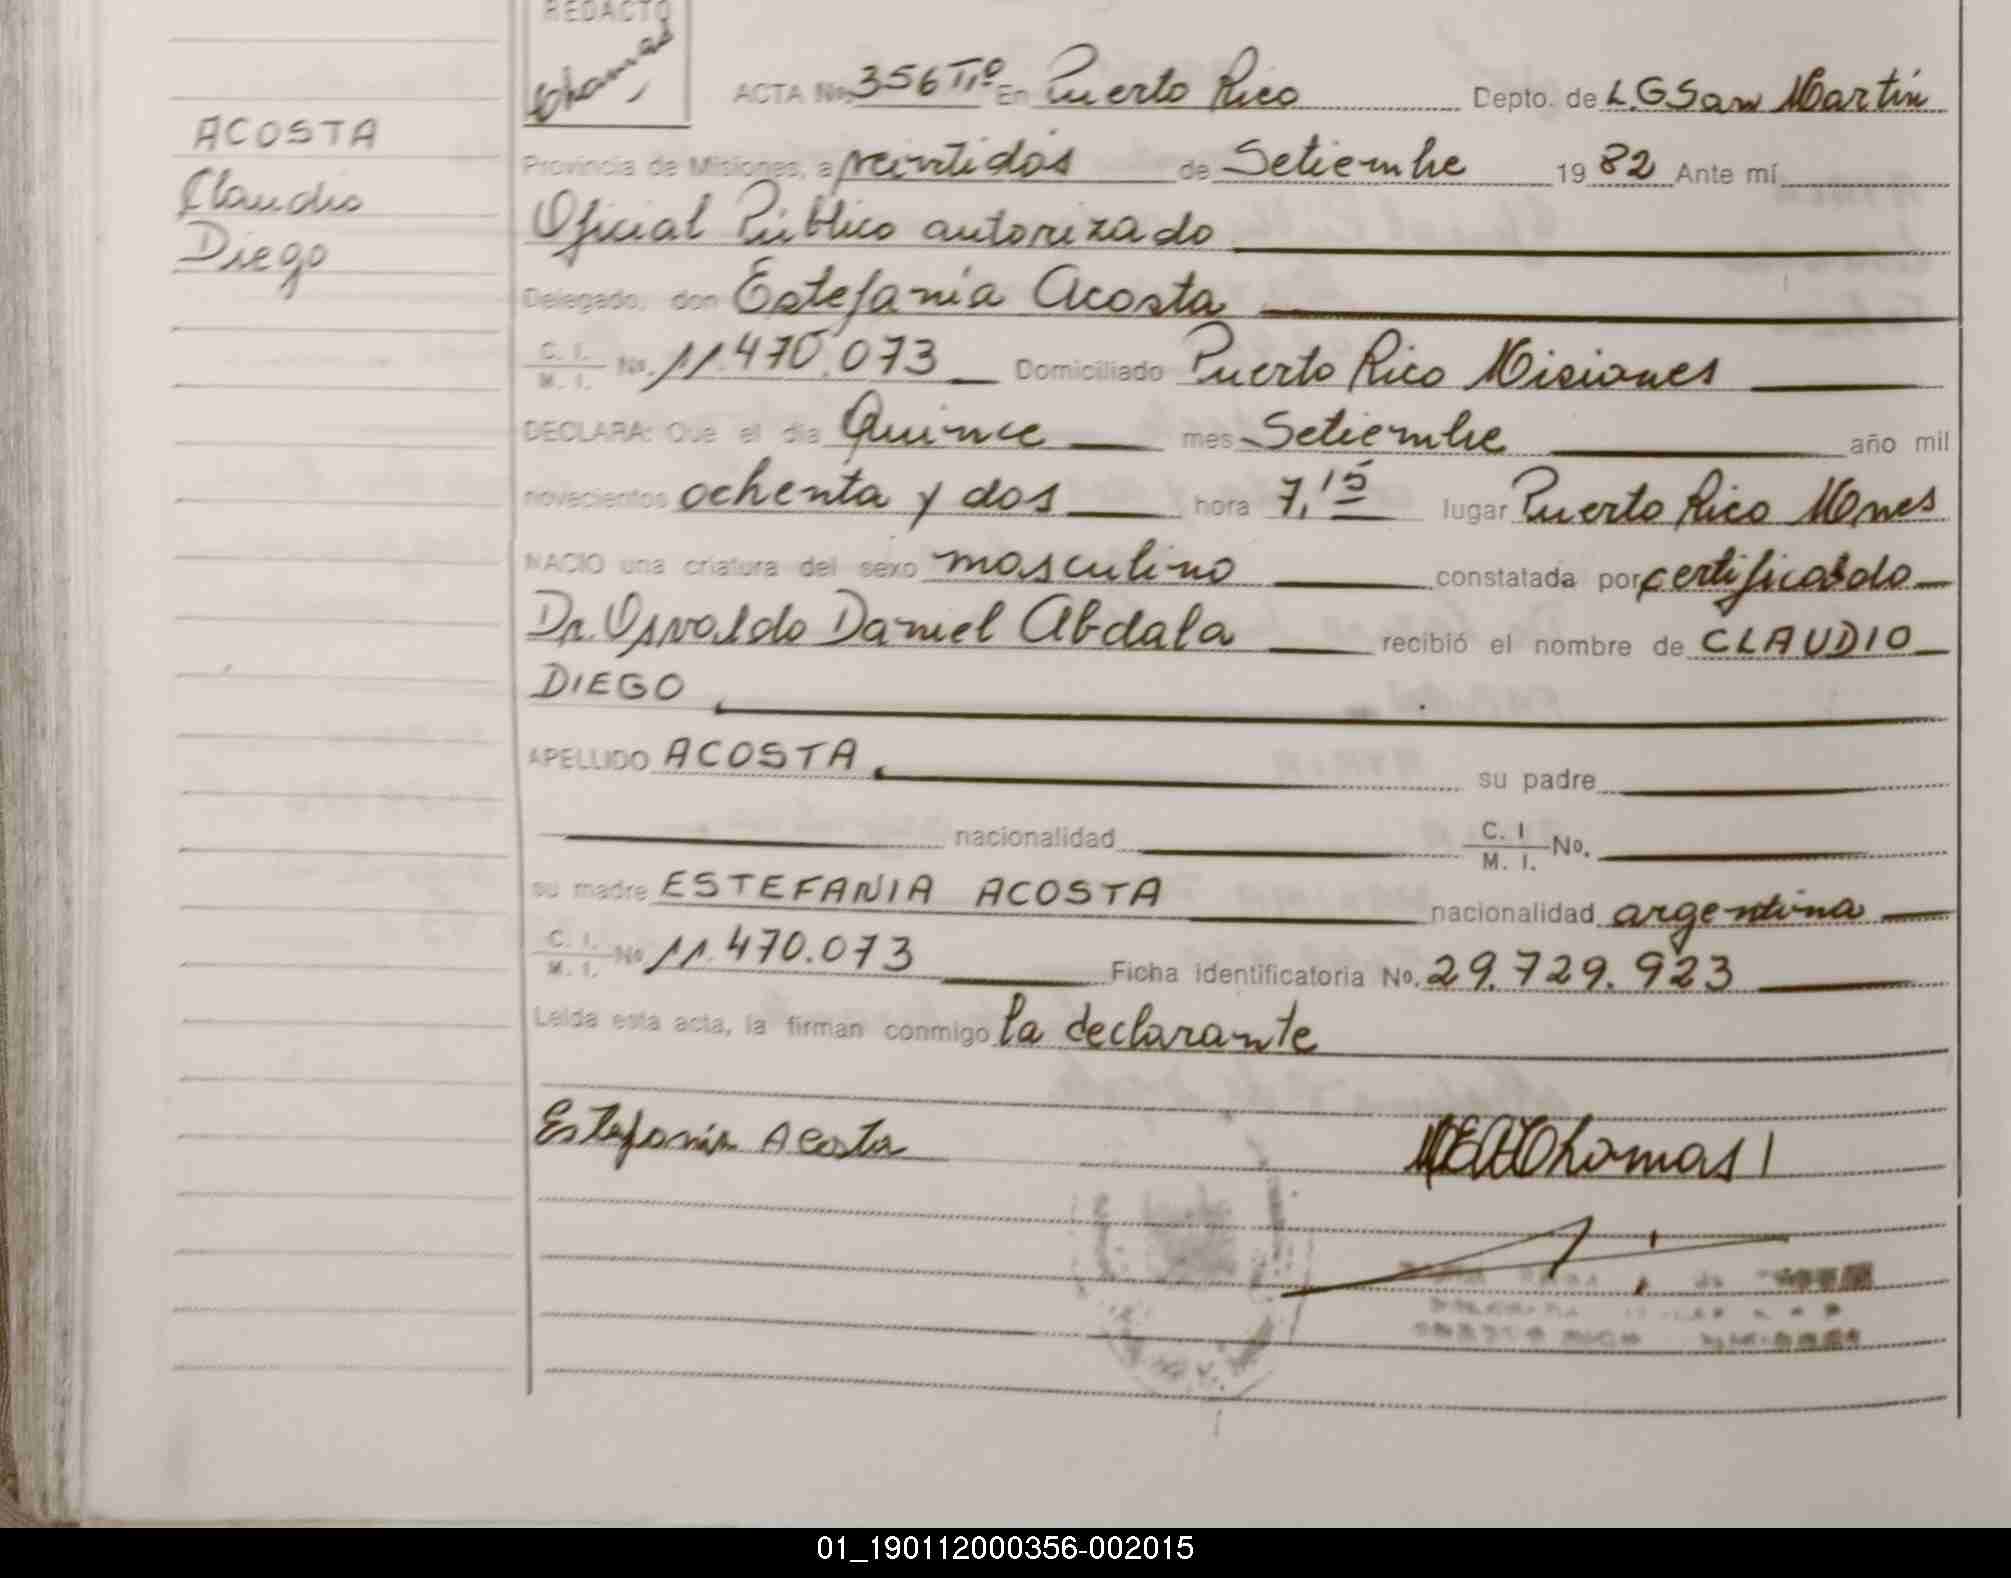 REDACTO
Chamas
ACTA No. 356 Tº En Puerto Rico Depto. de L.G San Martín
ACOSTA
Claudio
Diego
Provincia de Misiones, a veintidós de Setiembre 1982 Ante mí
Oficial Público autorizado
Delegado, don Estefanía Acosta
C. I. / M. I. No. 11.470.073 Domiciliado Puerto Rico Misiones
DECLARA: Que el día Quince mes Setiembre año mil
novecientos ochenta y dos hora 7,15 lugar Puerto Rico Mnes
NACIO una criatura del sexo masculino constatada por certificado
Dr. Osvaldo Daniel Abdala recibió el nombre de CLAUDIO
DIEGO
APELLIDO ACOSTA su padre
nacionalidad C. I / M. I. No.
su madre ESTEFANIA ACOSTA nacionalidad argentina
C. I. / M. I. No 11.470.073 Ficha identificatoria No. 29.729.923
Leída esta acta, la firman conmigo la declarante
Estefanía Acosta
01_190112000356-002015